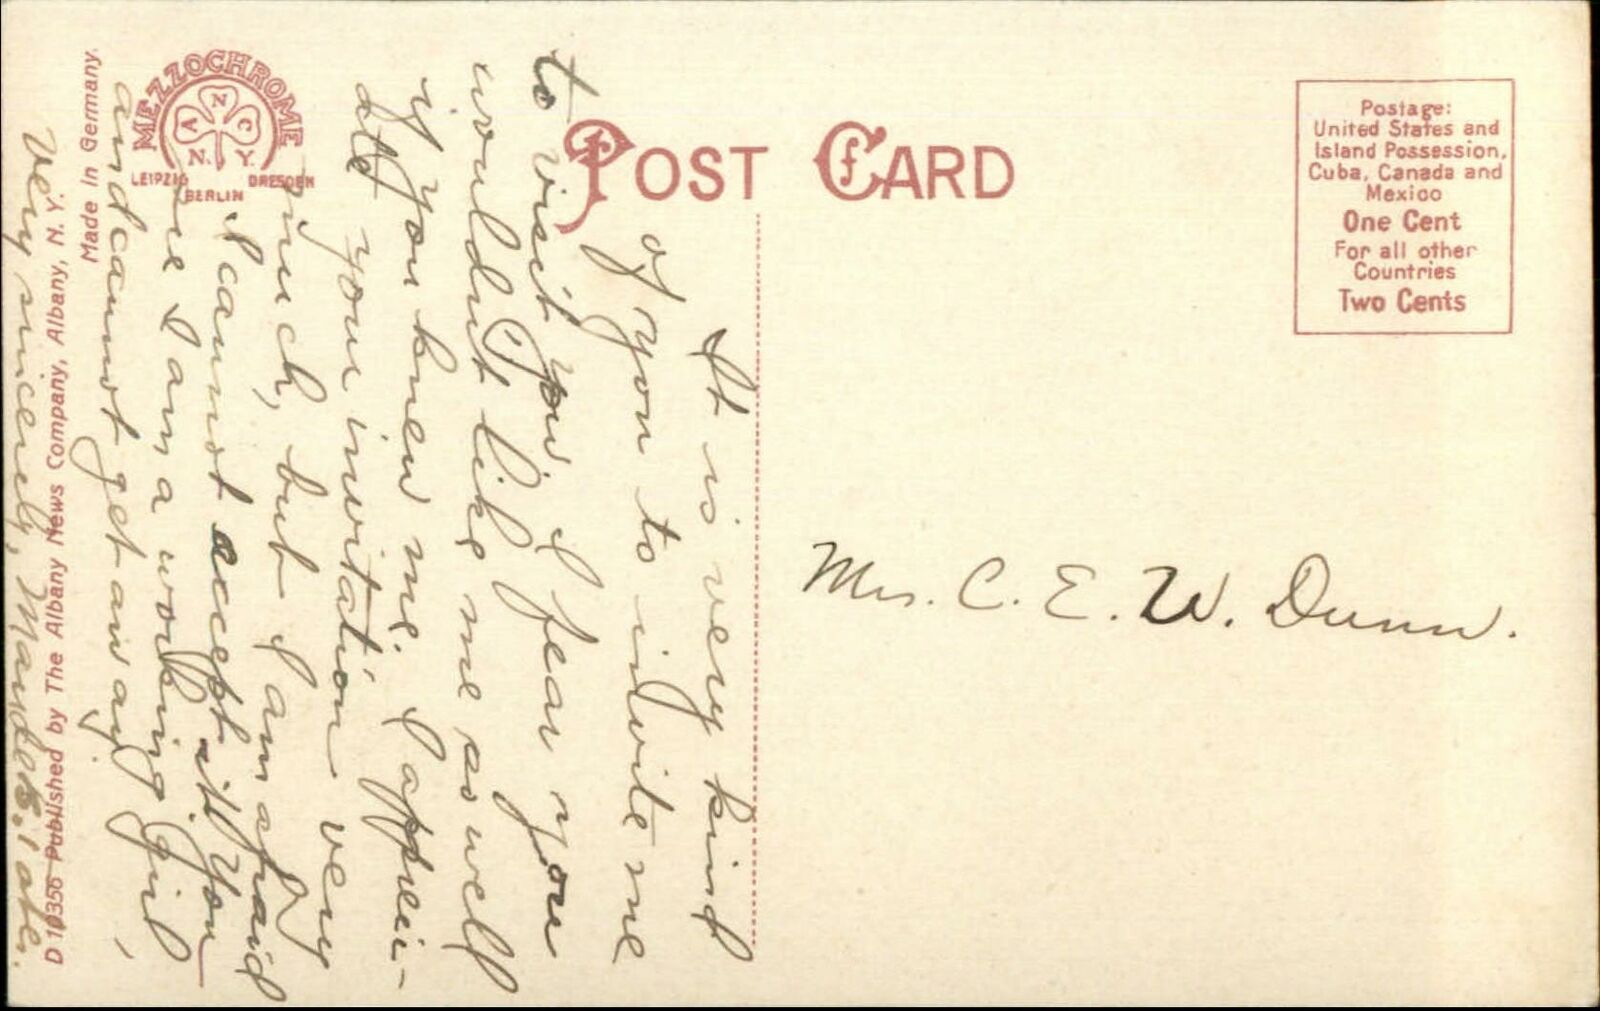 MEZZOCHROME
N
V C
N. Y.
LEIPZIG DRESDEN
BERLIN
Made in Germany.
D 11356 Published by The Albany News Company, Albany, N. Y.
POST CARD
Postage:
United States and
Island Possession,
Cuba, Canada and
Mexico
One Cent
For all other
Countries
Two Cents
It is very kind
of you to invite me
to visit you. I fear you
wouldn't like me so well
if you knew me. I apprei-
ate your invitation very
much, but I am afraid
I cannot accept it. You
see I am a working girl,
and cannot get away.
Very sincerely, Maude
Mrs. C. E. W. Dunn.